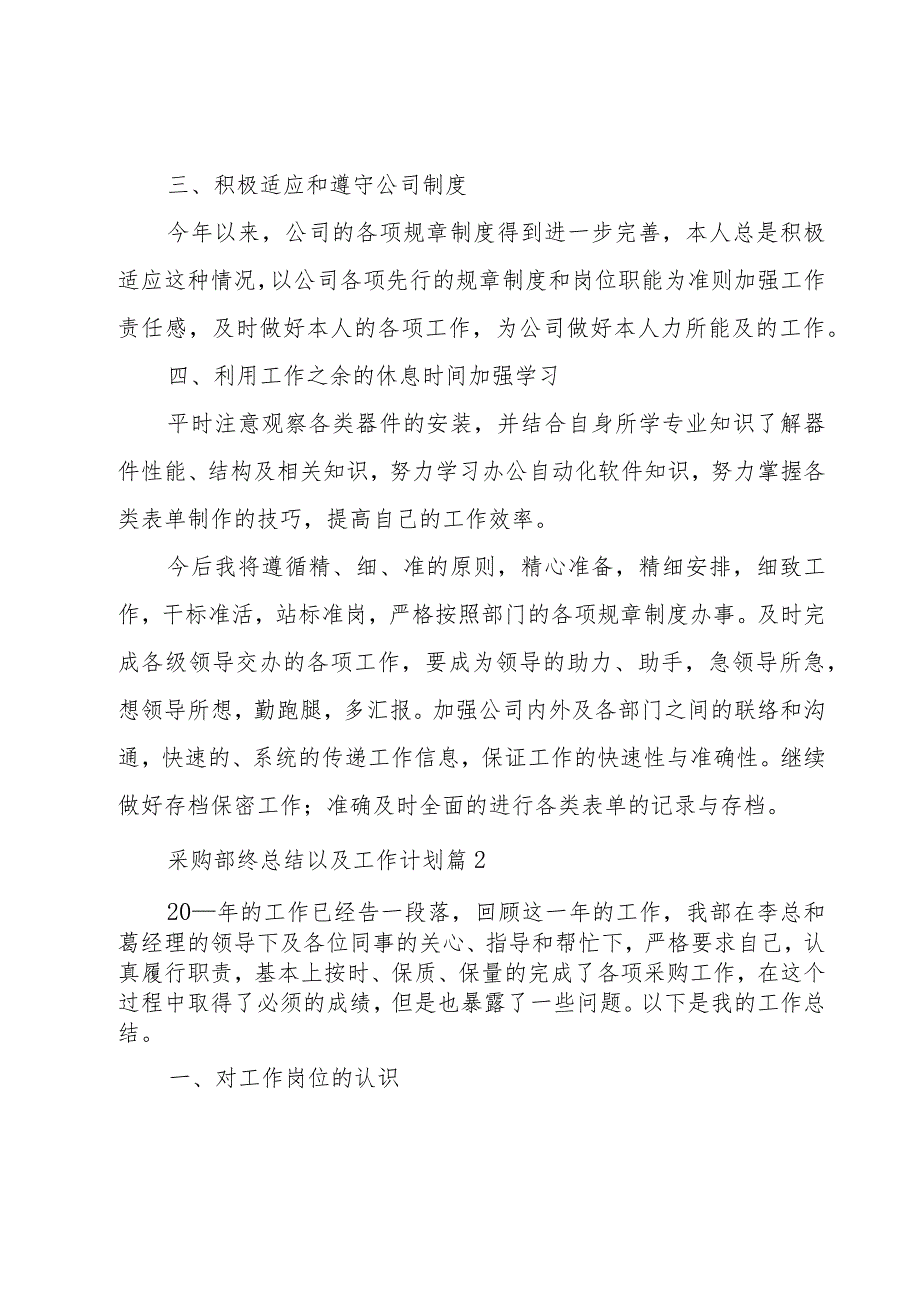 三、积极适应和遵守公司制度
今年以来，公司的各项规章制度得到进一步完善，本人总是积极
适应这种情况，以公司各项先行的规章制度和岗位职能为准则加强工作
责任感，及时做好本人的各项工作，为公司做好本人力所能及的工作。
四、利用工作之余的休息时间加强学习
平时注意观察各类器件的安装，并结合自身所学专业知识了解器
件性能、结构及相关知识，努力学习办公自动化软件知识，努力掌握各
类表单制作的技巧，提高自己的工作效率。
今后我将遵循精、细、准的原则，精心准备，精细安排，细致工
作，干标准活，站标准岗，严格按照部门的各项规章制度办事。及时完
成各级领导交办的各项工作，要成为领导的助力、助手，急领导所急，
想领导所想，勤跑腿，多汇报。加强公司内外及各部门之间的联络和沟
通，快速的、系统的传递工作信息，保证工作的快速性与准确性。继续
做好存档保密工作；准确及时全面的进行各类表单的记录与存档。
采购部终总结以及工作计划篇2
20—年的工作已经告一段落，回顾这一年的工作，我部在李总和
葛经理的领导下及各位同事的关心、指导和帮忙下，严格要求自己，认
真履行职责，基本上按时、保质、保量的完成了各项采购工作，在这个
过程中取得了必须的成绩，但是也暴露了一些问题。以下是我的工作总
结。
一、对工作岗位的认识